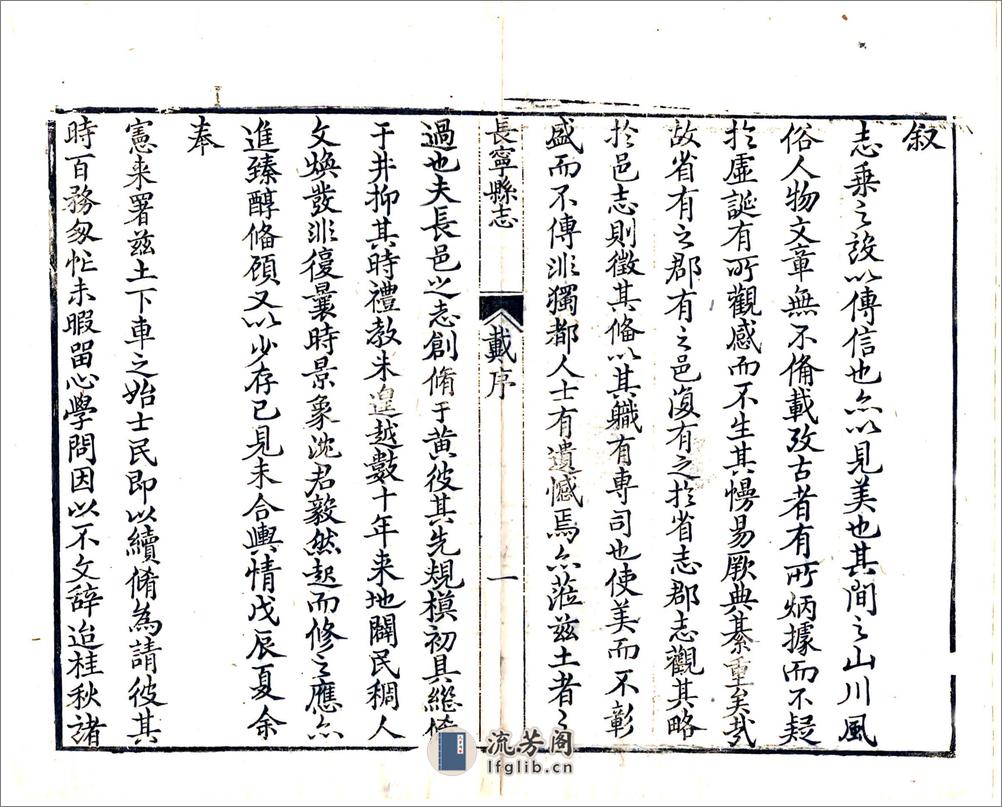 叙
志乘之設以傳信也亦以見美也其間之山川風
俗人物文章無不備載攷古者有所炳據而不疑
於虛誕有所觀感而不生其慢易厥典綦重矣哉
故省有之郡有之邑復有之於省志郡志觀其略
於邑志則徵其俻以其職有専司也使美而不彰
盛而不傳非獨都人士有遺憾焉亦蒞兹土者之
長寧縣志
戴序
一
過也夫長邑之志創脩于黄彼其先規模初具繼脩
于井抑其時禮教未遑越數十年来地闢民稠人
文煥發非復曩時景象沈君毅然起而修之應亦
進臻醇俻顧又以少存已見未合輿情戊辰夏余
奉
憲来署兹土下車之始士民即以續脩為請彼其
時百務匆忙未暇留心學問因以不文辞迨桂秋諸
流芳阁
lfglib.cn